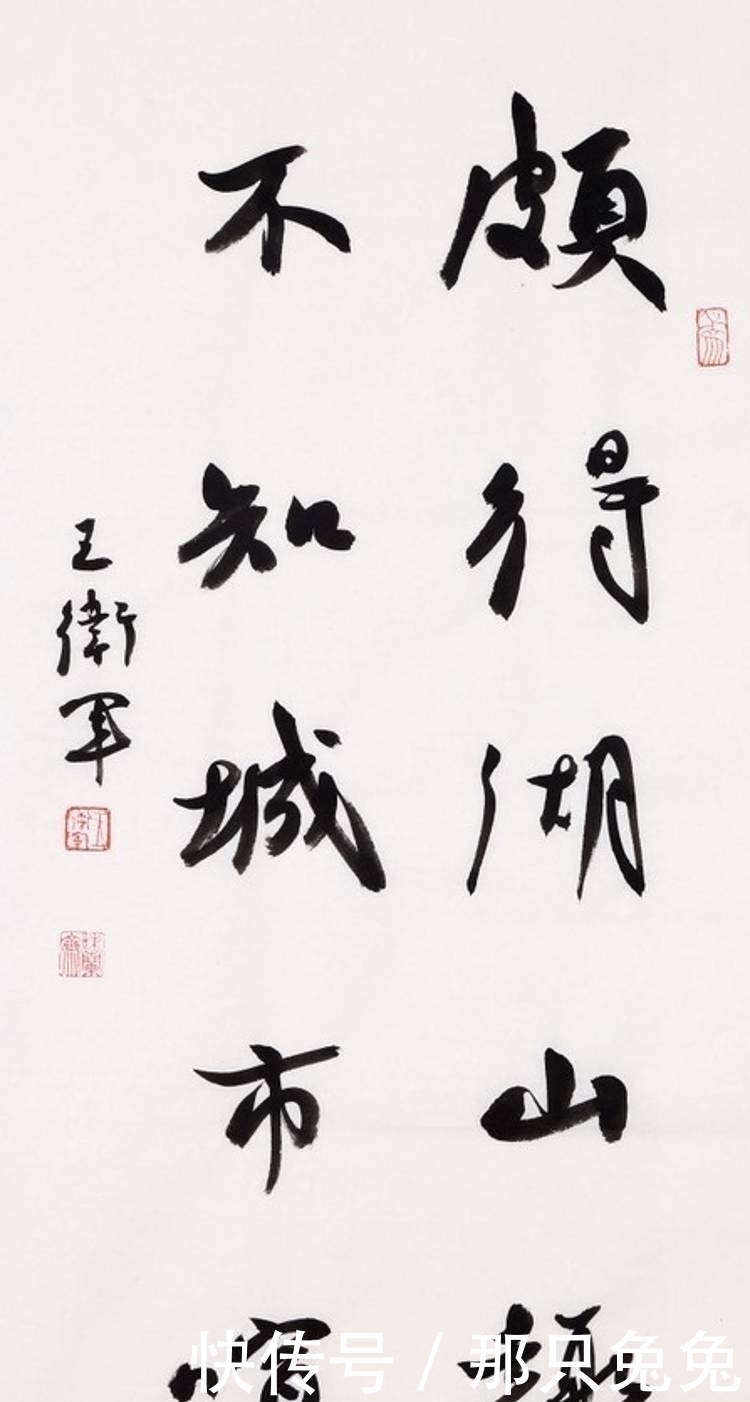 頗得湖山
不知城市
王衛軍
快传号 / 那只兔兔